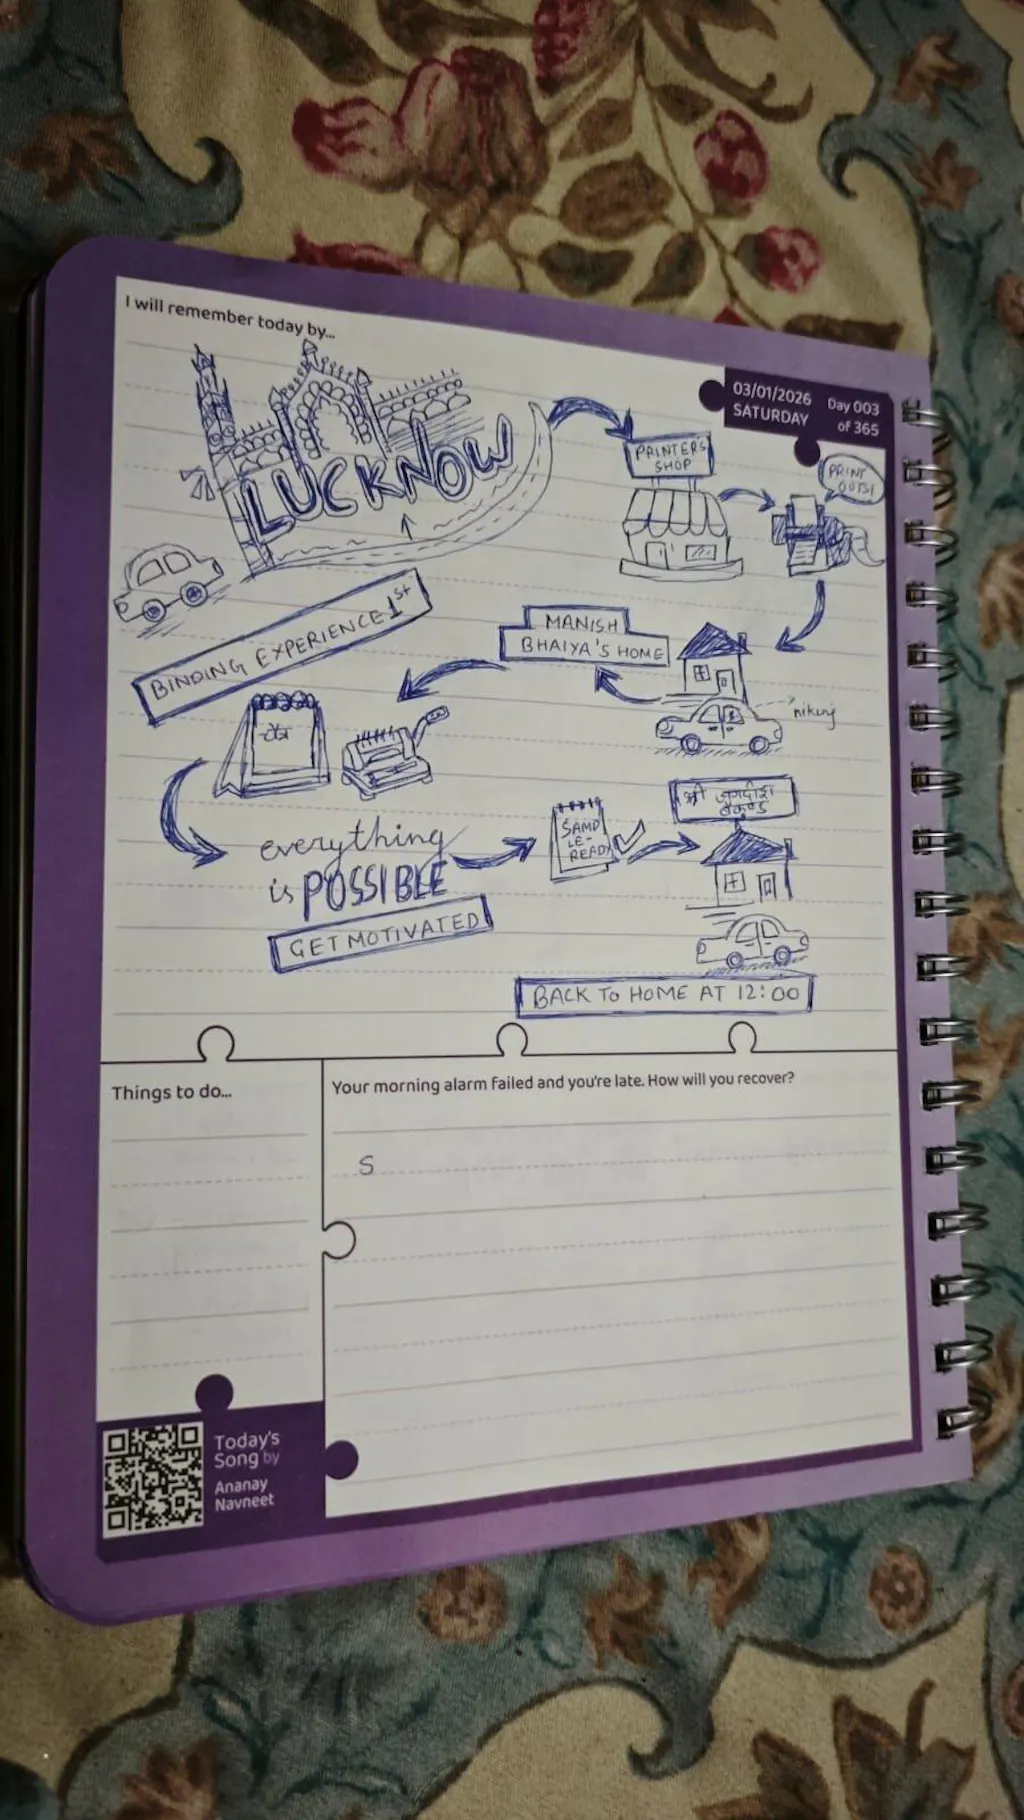 I will remember today by...
03/01/2026
SATURDAY
Day 003
of 365
LUCKNOW
PRINTER'S
SHOP
PRINT
OUTS!
MANISH
BHAIYA'S HOME
BINDING EXPERIENCE 1st
everything
is POSSIBLE
GET MOTIVATED
SAMP
LE-
READY
श्री जगदीश
BACK TO HOME AT 12:00
Things to do...
Your morning alarm failed and you're late. How will you recover?
S
Today's
Song by
Ananay
Navneet